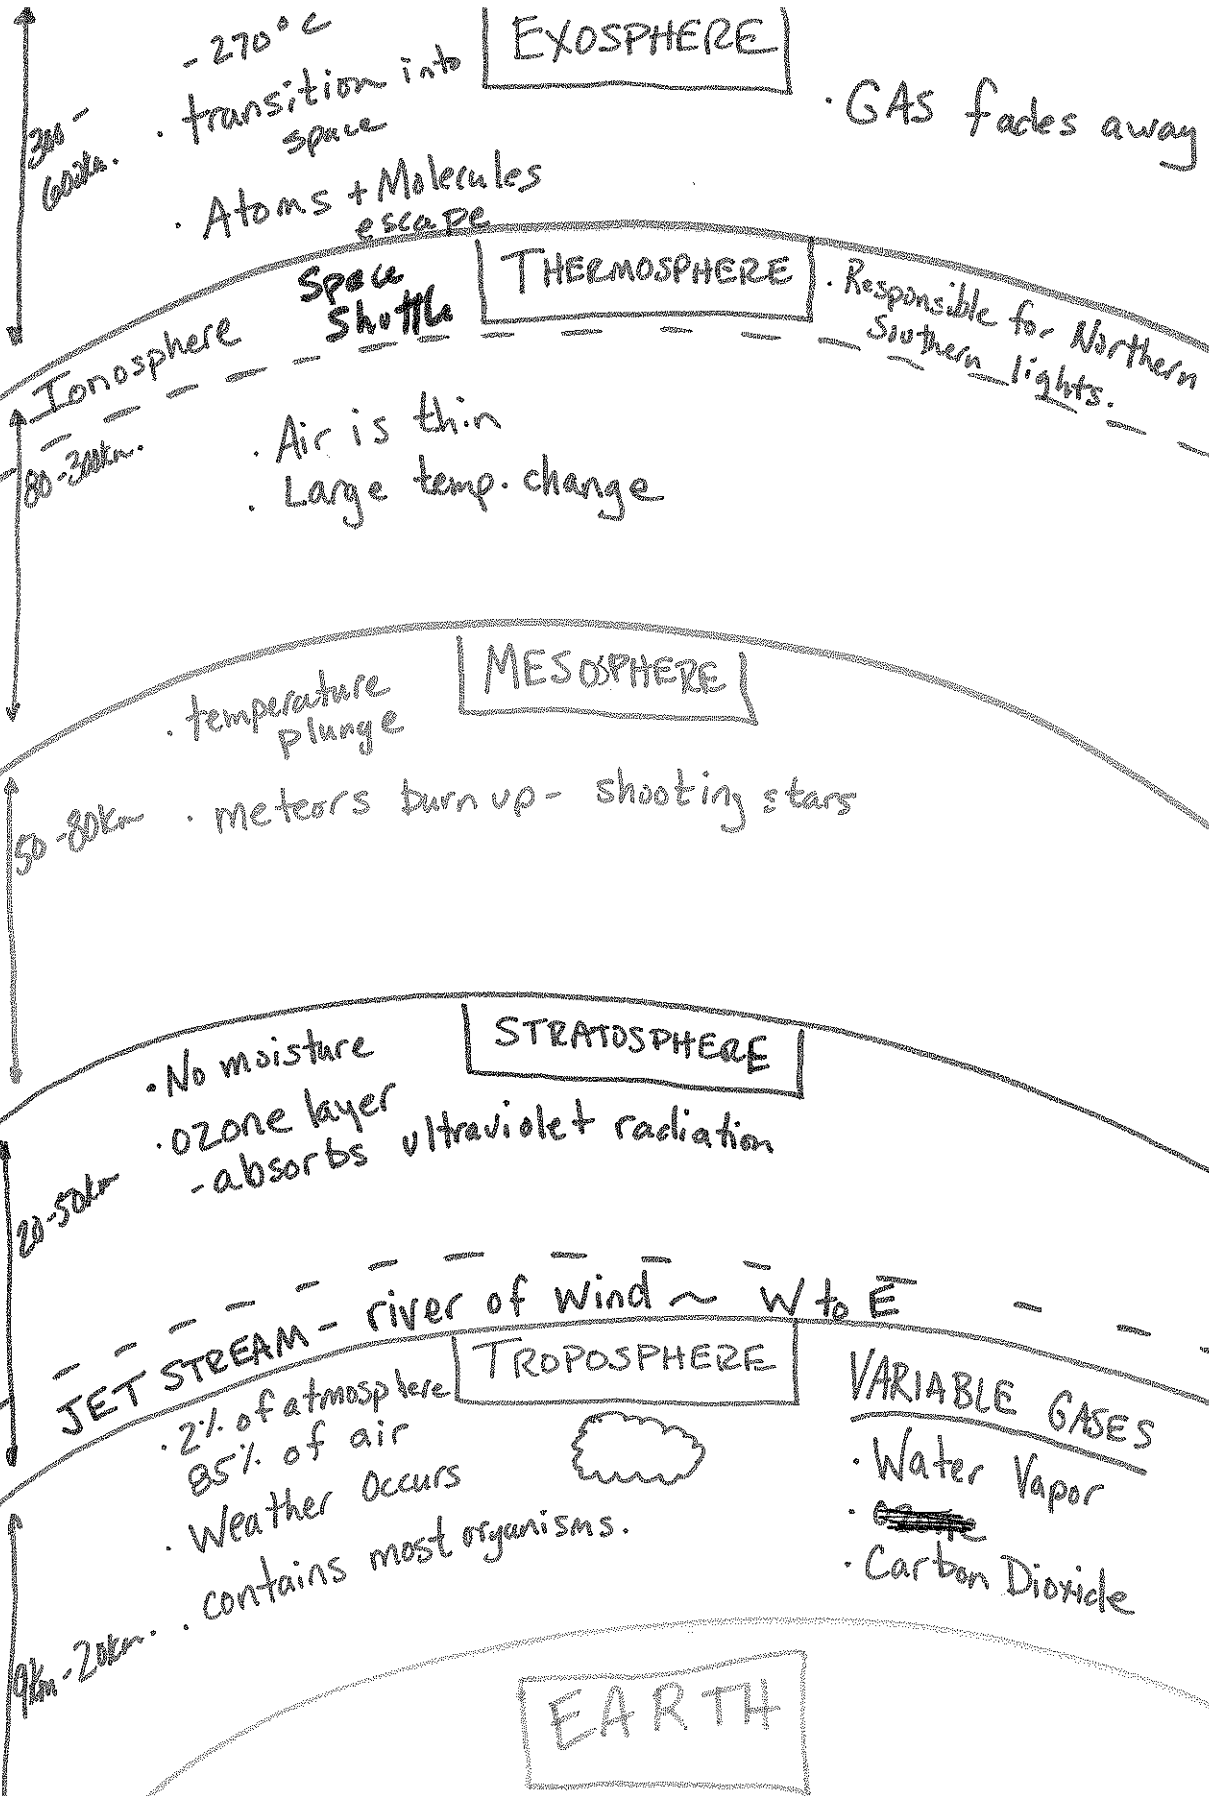 - 270°C
EXOSPHERE
300-
600km.
· transition into
space
· GAS fades away
· Atoms + Molecules
escape
Ionosphere
Space
Shuttle
THERMOSPHERE
· Responsible for Northern
Southern lights.
80-300km.
· Air is thin
· Large temp. change
MESOSPHERE
· temperature
plunge
50-80km
· meteors burn up - shooting stars
STRATOSPHERE
· No moisture
· ozone layer
- absorbs ultraviolet radiation
20-50km
JET STREAM - river of wind ~ W to E
TROPOSPHERE
· 2% of atmosphere
85% of air
· Weather occurs
· contains most organisms.
9km-20km.
VARIABLE GASES
· Water Vapor
· Carbon Dioxide
EARTH